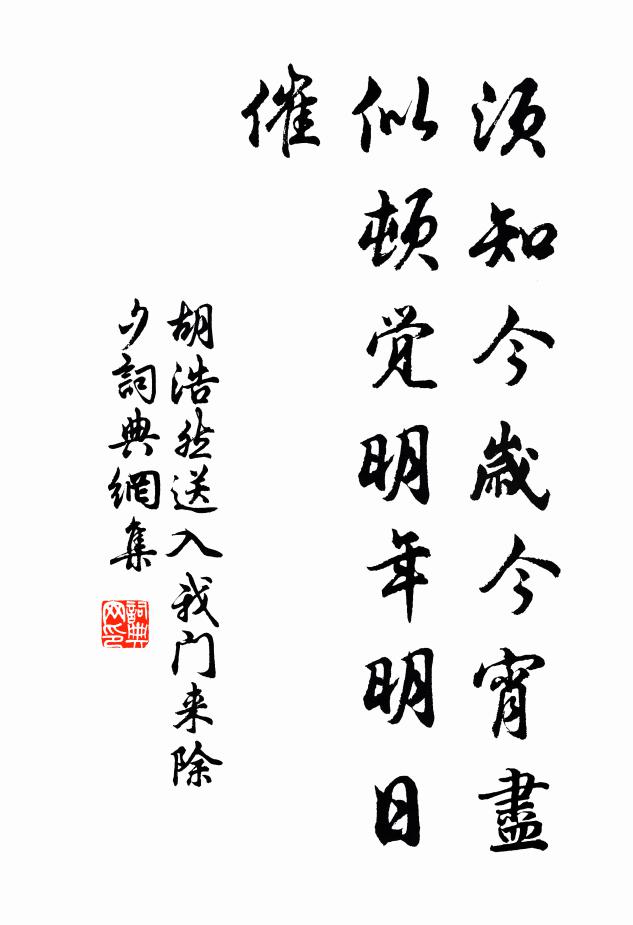 须知今歲今宵盡
似顿觉明年明日
催
胡浩然送入我门来除
夕詞典網集
詞典
网印